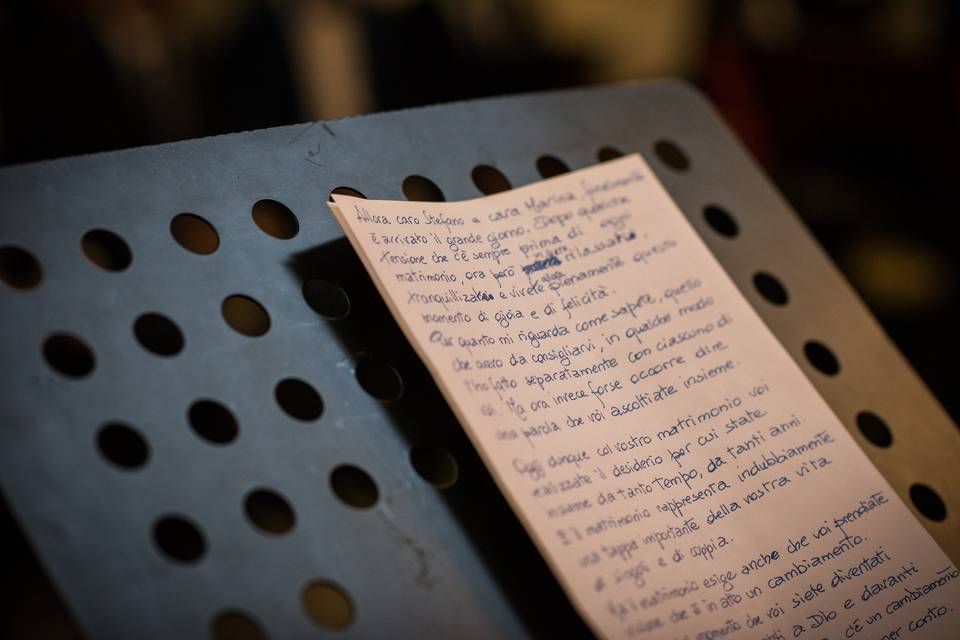 Allora caro Stefano e cara Marina, finalmente
è arrivato il grande giorno. Dopo qualche
tensione che c'è sempre prima di ogni
matrimonio, ora però rilassatevi
tranquillizzatevi e vivete pienamente questo
momento di gioia e di felicità.
Per quanto mi riguarda come sapete, quello
che avevo da consigliarvi, in qualche modo
l'ho fatto separatamente con ciascuno di
voi. Ma ora invece forse occorre dire
una parola che voi ascoltiate insieme.
Oggi dunque col vostro matrimonio voi
realizzate il desiderio per cui state
insieme da tanto tempo, da tanti anni.
E il matrimonio rappresenta indubbiamente
una tappa importante della vostra vita
di singoli e di coppia.
Ma il matrimonio esige anche che voi prendiate
che è in atto un cambiamento.
momento che voi siete diventati
a Dio e davanti
c'è un cambiamento
conto.